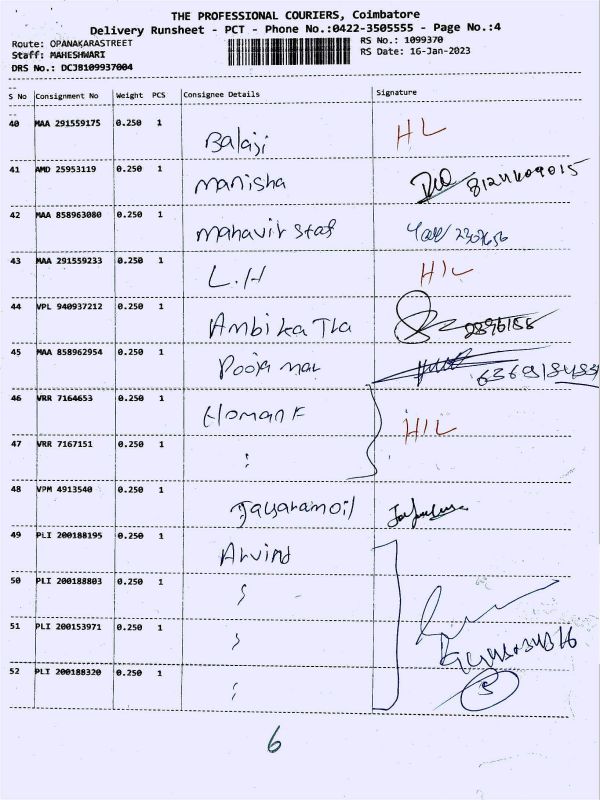 THE PROFESSIONAL COURIERS, Coimbatore
Delivery Runsheet - PCT - Phone No.:0422-3505555 - Page No.:4
Route: OPANAKARASTREET
RS No.: 1099370
Staff: MAHESHWARI
RS Date: 16-Jan-2023
DRS No.: DCJB109937004
S No Consignment No Weight PCS Consignee Details Signature
40 MAA 291559175 0.250 1 Balaji HL
41 AMD 25953119 0.250 1 manisha
42 MAA 858963080 0.250 1 mahavir staf
43 MAA 291559233 0.250 1 L.H HIL
44 VPL 940937212 0.250 1 Ambika Tra
45 MAA 858962954 0.250 1 Pooja mar
46 VRR 7164653 0.250 1 HIL
47 VRR 7167151 0.250 1
48 VPM 4913540 0.250 1 Jayaramoil
49 PLI 200188195 0.250 1 Arvind
50 PLI 200188803 0.250 1
51 PLI 200153971 0.250 1
52 PLI 200188320 0.250 1 5
6